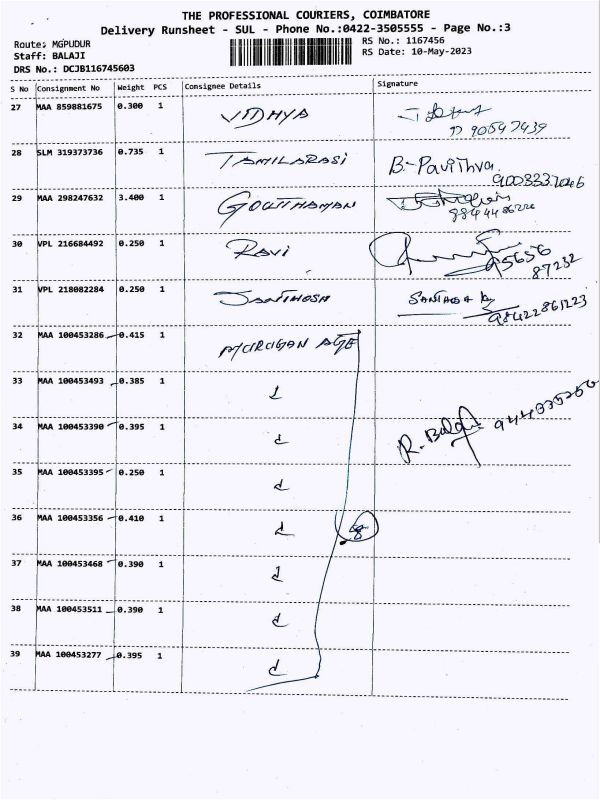 THE PROFESSIONAL COURIERS, COIMBATORE
Delivery Runsheet - SUL - Phone No.:0422-3505555 - Page No.:3
Route: MGPUDUR
RS No.: 1167456
Staff: BALAJI
RS Date: 10-May-2023
DRS No.: DCJB116745603
S No Consignment No Weight PCS Consignee Details Signature
27 MAA 859881675 0.300 1 VIDHYA
28 SLM 319373736 0.735 1 TAMILARASI B. Pavithra
9003337046
29 MAA 298247632 3.400 1 GOWTHAMAN
9844486226
30 VPL 216684492 0.250 1 RAVI
95656
87232
31 VPL 218082284 0.250 1 SANTHOSH
98422861223
32 MAA 100453286 0.415 1 MURUGAN AGE
33 MAA 100453493 0.385 1
34 MAA 100453390 0.395 1 R. Balaji
35 MAA 100453395 0.250 1
36 MAA 100453356 0.410 1 8
37 MAA 100453468 0.390 1
38 MAA 100453511 0.390 1
39 MAA 100453277 0.395 1